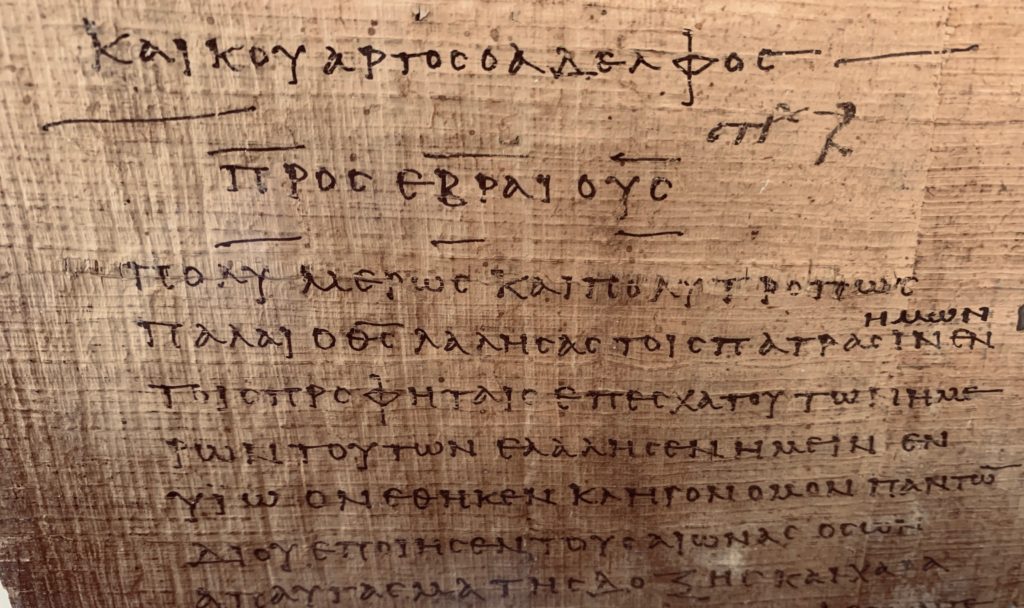 ΚΑΙ ΚΟΥΑΡΤΟΣ Ο ΑΔΕΛΦΟΣ
ΠΡΟΣ ΕΒΡΑΙΟΥΣ
ΠΟΛΥΜΕΡΩΣ ΚΑΙ ΠΟΛΥΤΡΟΠΩΣ
ΗΜΩΝ
ΠΑΛΑΙ Ο ΘΣ ΛΑΛΗΣΑΣ ΤΟΙΣ ΠΑΤΡΑΣΙΝ ΕΝ
ΤΟΙΣ ΠΡΟΦΗΤΑΙΣ ΕΠ ΕΣΧΑΤΟΥ ΤΩΝ ΗΜΕ
ΡΩΝ ΤΟΥΤΩΝ ΕΛΑΛΗΣΕΝ ΗΜΕΙΝ ΕΝ
ΥΙΩ ΟΝ ΕΘΗΚΕΝ ΚΛΗΡΟΝΟΜΟΝ ΠΑΝΤΩ̅
ΔΙ ΟΥ ΕΠΟΙΗΣΕΝ ΤΟΥΣ ΑΙΩΝΑΣ ΟΣ ΩΝ
ΑΠΑΥΓΑΣΜΑ ΤΗΣ ΔΟΞΗΣ ΚΑΙ ΧΑΡΑ